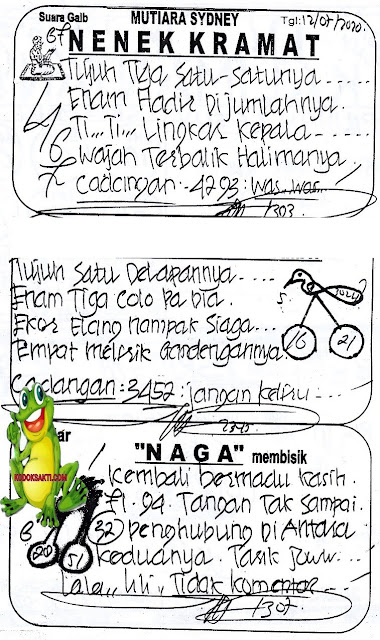 Suara Gaib MUTIARA SYDNEY Tgl: 12/07/2020.
NENEK KRAMAT
Tujuh Tiga Satu-Satunya .....
Enam Hadir Dijumlahnya.
4 Ti,,, Ti,,, Lingkar Kepala .....
6 Wajah Terbalik Halimanya.
7 Cadangan :- 4293 : was.. was..
1303
Tujuh Satu Delapannya ....
Enam Tiga Colo Pa Dia.
Ekor Elang Nampak Siaga...
Tempat Melesik Gandengannya.
16 21
Cadangan : 3452 : jangan keliru
2340
KODOKSAKTI.COM
"NAGA" membisik
Kembali bermadu kasih.
94. Tangan Tak Sampai.
8 32 Penghubung Di Antara
20 51 Keduanya. Tarik
Lala,, lili,, Tidak Komentar
1307